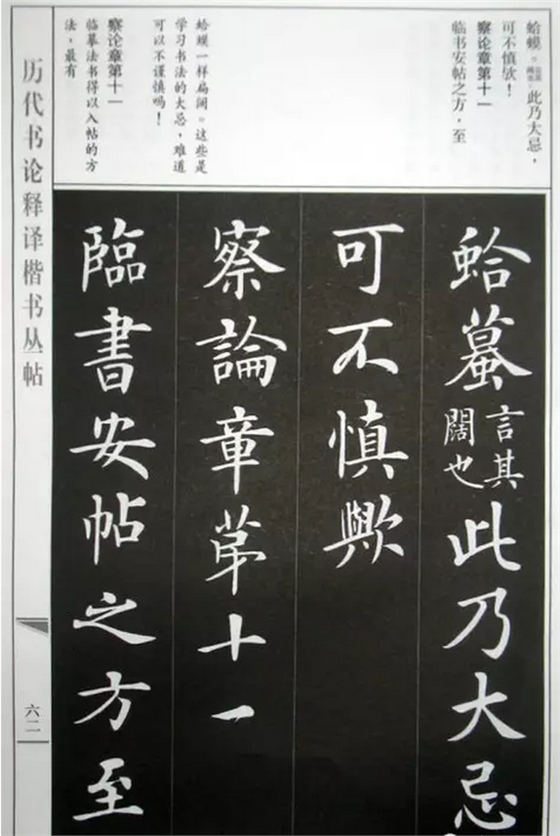 蛤蟆。此乃大忌，
可不慎欤！
察论章第十一
临书安帖之方，至
蛤蟆一样扁阔。这些是
学习书法的大忌，难道
可以不谨慎吗！
察论章第十一
临摹法书得以入帖的方
法，最有
蛤蟇言其闊也此乃大忌
可不慎歟
察論章第十一
臨書安帖之方至
历代书论释译楷书丛帖
六二